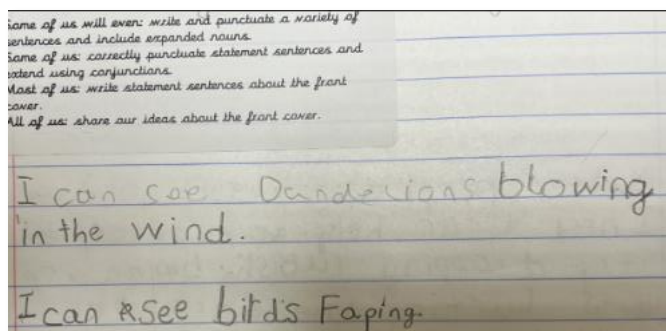 Some of us will even: write and punctuate a variety of
sentences and include expanded nouns.
Some of us: correctly punctuate statement sentences and
extend using conjunctions.
Most of us: write statement sentences about the front
cover.
All of us: share our ideas about the front cover.
I can see Dandelions blowing
in the wind.
I can see birds Faping.